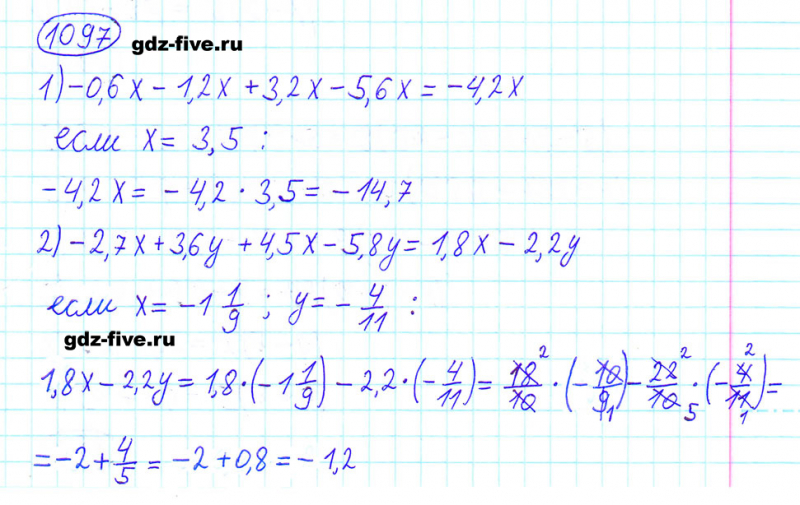 1097 gdz-five.ru
1) -0,6x - 1,2x + 3,2x - 5,6x = -4,2x
если x = 3,5 :
-4,2x = -4,2 · 3,5 = -14,7
2) -2,7x + 3,6y + 4,5x - 5,8y = 1,8x - 2,2y
если x = -1 1/9 ; y = - 4/11 :
gdz-five.ru
1,8x - 2,2y = 1,8 · (-1 1/9) - 2,2 · (- 4/11) = 18 2/10 · (- 10/9 1) - 22 2/10 5 · (- 4 2/11 1) =
= -2 + 4/5 = -2 + 0,8 = -1,2